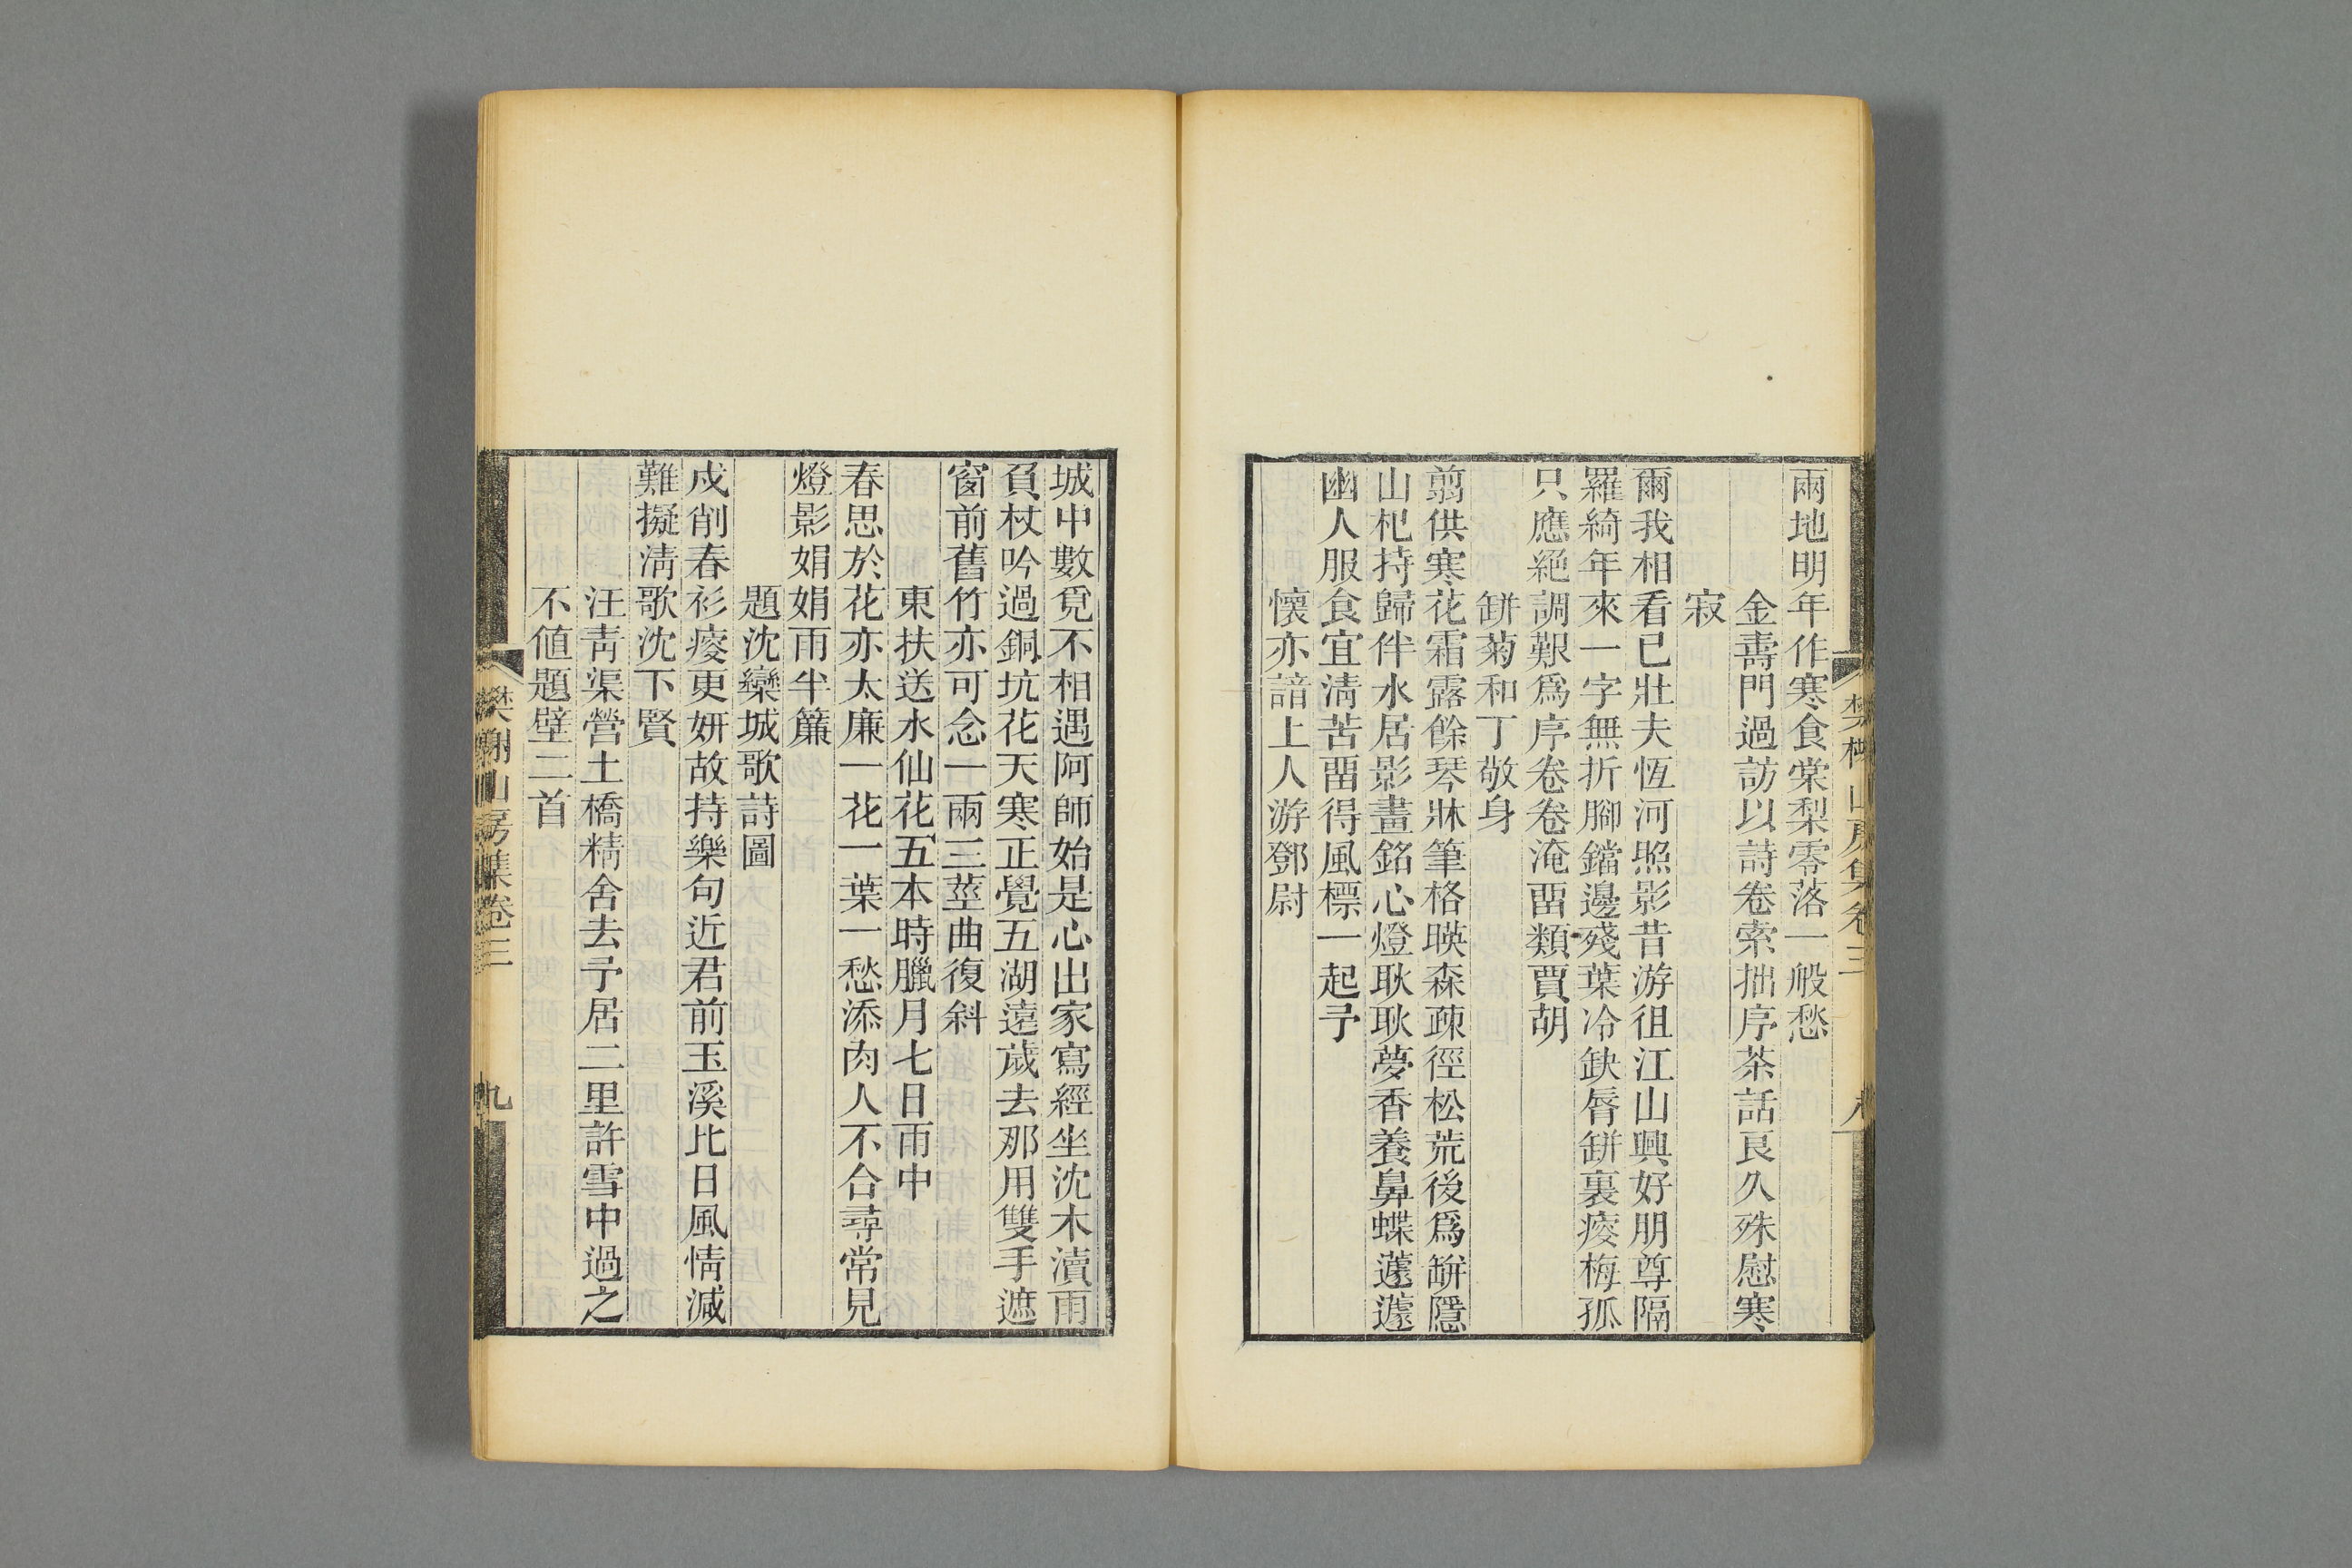 兩地明年作寒食棠梨零落一般愁
金壽門過訪以詩卷索拙序茶話良久殊慰寒
寂
爾我相看已壯夫恆河照影昔游徂江山興好朋尊隔
羅綺年來一字無折腳鐺邊殘葉冷缺脣缾裏瘦梅孤
只應絕調艱爲序卷卷淹畱類賈胡
缾菊和丁敬身
翦供寒花霜露餘琴牀筆格暎森疎徑松荒後爲缾隱
山杞持歸伴水居影畫銘心燈耿耿夢香養鼻蝶蘧蘧
幽人服食宜淸苦畱得風標一起予
懷亦諳上人游鄧尉
樊榭山房集卷三
八
城中數覓不相遇阿師始是心出家寫經坐沈木瀆雨
負杖吟過銅坑花天寒正覺五湖遠歲去那用雙手遮
窗前舊竹亦可念一兩三莖曲復斜
東扶送水仙花五本時臘月七日雨中
春思於花亦太廉一花一葉一愁添肉人不合尋常見
燈影娟娟雨半簾
題沈欒城歌詩圖
戍削春衫瘦更姸故持樂句近君前玉溪比日風情減
難擬淸歌沈下賢
汪靑渠營土橋精舍去予居二里許雪中過之
不値題壁二首
樊榭山房集卷三
九